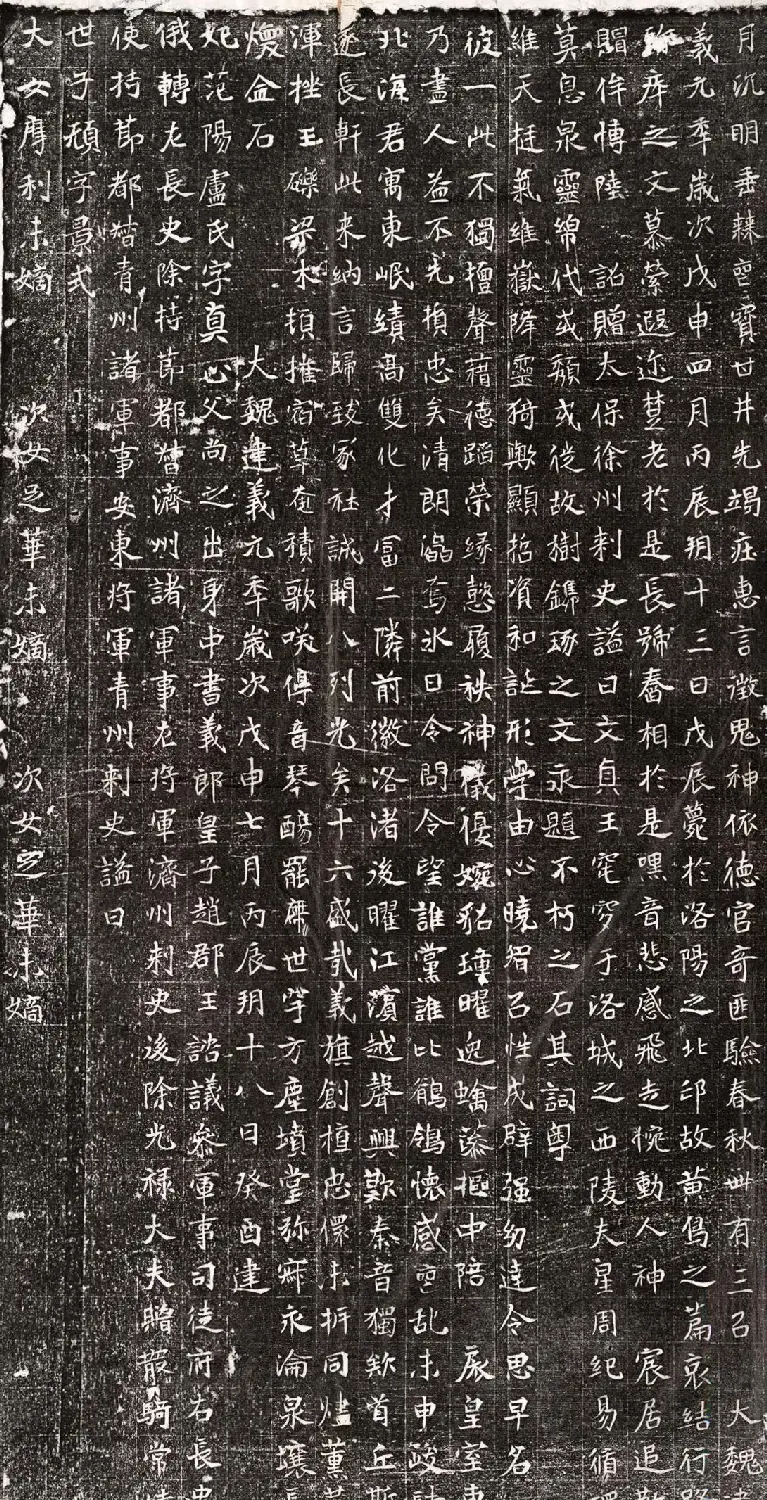 月沉明垂棘壹寶甘井先竭在惠言徵鬼神依德官奇匪驗春秋丗有三㠯大魏建
義元年歲次戊申四月丙辰朔十三日戊辰薨於洛陽之北邙故黃鳥之篇哀結行路
之文慕縈遐迩楚老於是長號舂相於是嘿音悲感飛走惋動人神宸居追
賵侔博陸詔贈太保徐州刺史謚曰文貞王窀穸于洛城之西陵夫星周紀易循
莫息泉靈綿代或頽或徙故樹鐫琢之文永題不朽之石其詞粵
維天挺氣維嶽降靈猗歟顯招資和誕形學由心曉智㠯性成辟强幼達令思早名
彼一此不獨擅聲藉德蹈榮緣懿履袟神儀優婉貂瑾曜逸蟬藻摳中陪厥皇室
乃盡人益不先損忠矣清朗潏焉氷日令問令望誰黨誰比鶺鴒懷感壹乩未申
北海君寓東岷績高雙化才冨二隣前徽洛渚後曜江濱越聲興歎秦音獨欽首丘
逐長軒此來納言歸致冢社誠開八列光矣十六盛哉義旗創植忠保未枿同燼薰
渾挫王礫梁木頓摧宿草奄積歌咲停音琴醑罷席世宇方塵墳堂弥寂永淪泉壤
煥金石
大魏建義元年歲次戊申七月丙辰朔十八日癸酉建
妃范陽盧氏字真心父尚之出身中書議郎皇子趙郡王諮議參軍事司徒府右長史
俄轉左長史除持節都督濟州諸軍事左將軍濟州刺史後除光禄大夫贈散騎常
使持節都督青州諸軍事安東將軍青州刺史謚曰
世子頑字景式
大女摩利未嫡 次女足華未嫡 次女芝華未嫡